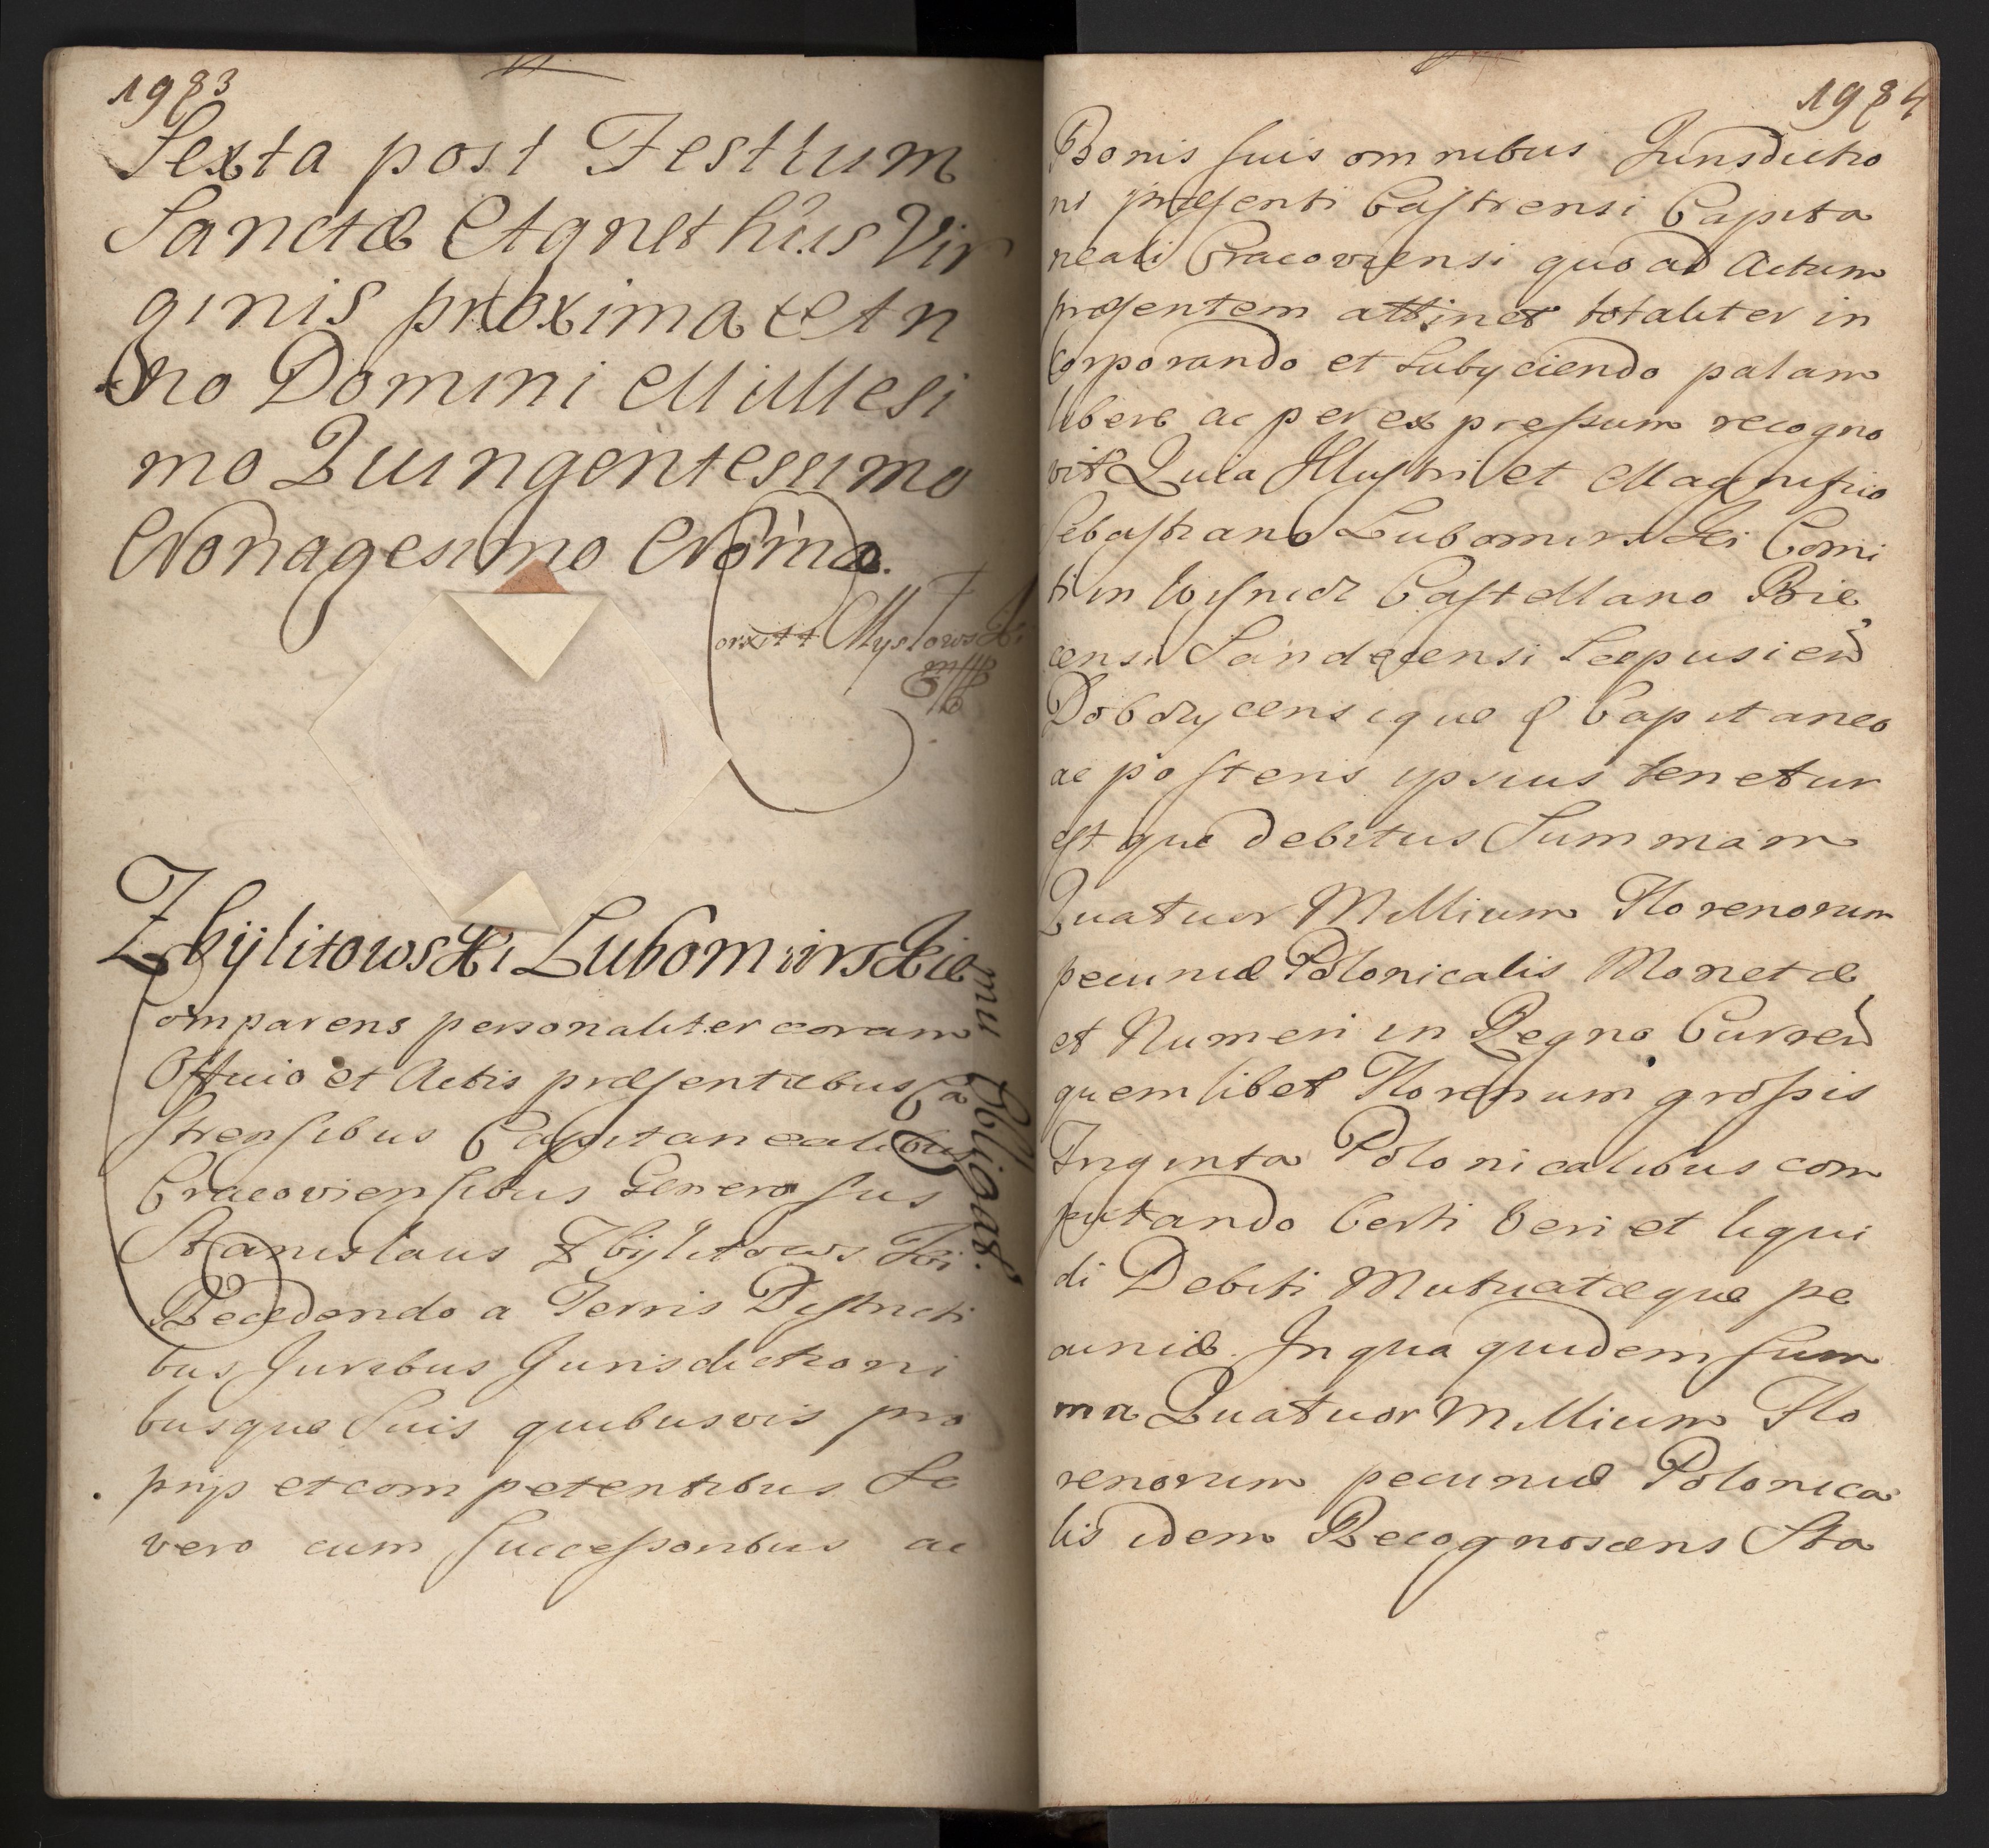 1983
Sexta post Festum
Sanctæ Agnethis Vir
ginis proxima An
no Domini Millesi
mo Quingentessimo
Nonagesimo Nono.
Zbÿlitowski Lubomirskie
mu Obligat.
Comparens personaliter coram
Officio et Actis præsentibus Ca
strensibus Capitanealibus
Cracoviensibus Generosus
Stanislaus Zbÿlitowski
Recedendo a Terris Districti
bus Juribus Jurisdictioni
busque Suis quibusvis pro
prijs et competentibus Se
vero cum successoribus ac
1984
Bonis suis omnibus Jurisdictio
ni præsenti Castrensi Capita
neali Cracoviensi quo ad Actum
præsentem attinet totaliter in
corporando et subyciendo palam
libere ac per expressum recogno
vit Quia Illustri et Magnifico
Sebastiano Lubomirski Comi
ti in Wisnicz Castellano Bie
censi Sandecensi Scepusien
Dobczycensique Capitaneo
ac posteris ipsius tenetur
estque debitus Summam
Quatuor Millium Florenorum
pecuniæ Polonicalis Monetæ
et Numeri in Regno Curren
quemlibet Florenum grossis
Triginta Polonicalibus com
putando Certi Veri et liqui
di Debiti Mutuatæque pe
cuniæ. In qua quidem sum
ma Quatuor Millium Flo
renorum pecuniæ Polonica
lis idem Recognoscens Sta